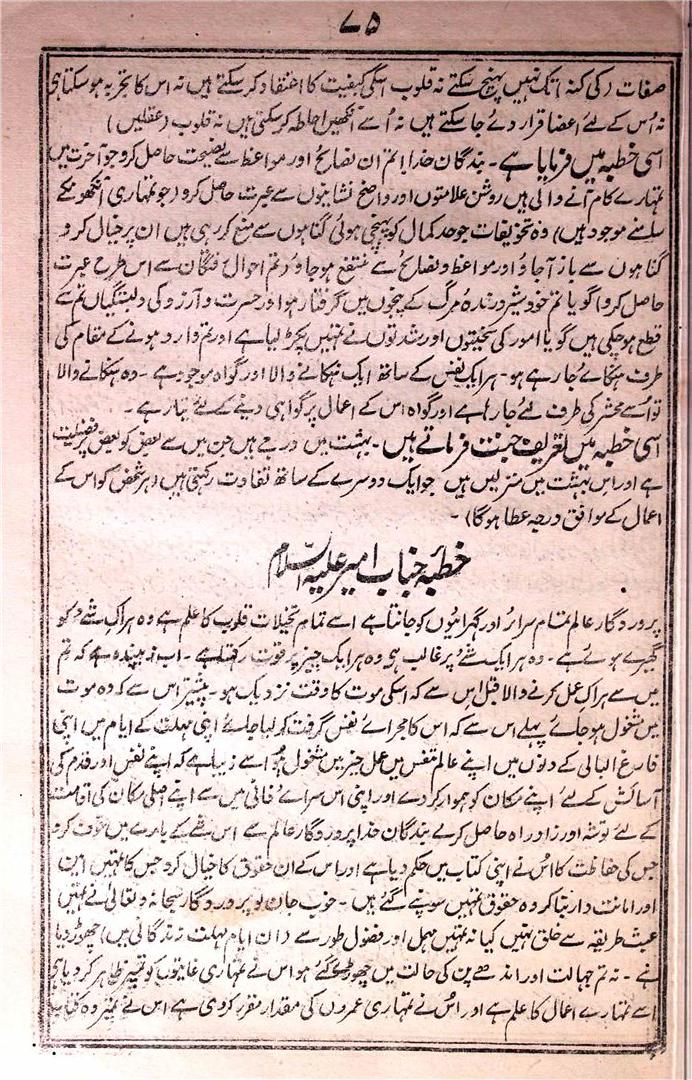 ۷۵
صفات (کی کنہ) تک نہیں پہنچ سکتے نہ قلوب اسکی کیفیت کا اعتقاد کر سکتے ہیں نہ اس کا تجزیہ ہو سکتا ہی
نہ اُس کے لئے اعضا قرار دئے جا سکتے ہیں نہ اُسے آنکھیں احاطہ کر سکتی ہیں نہ قلوب (عقلیں)
اسی خطبہ میں فرمایا ہے۔ بندگان خدا! تم ان نصائح اور مواعظ سے نصیحت حاصل کرو جو آخرت میں
تمہارے کام آنے والی ہیں روشن علامتوں اور واضح نشانیوں سے عبرت حاصل کرو (جو تمہاری آنکھونکے
سامنے موجود ہیں) وہ تخویفات جو حد کمال کو پہنچی ہوئی گناہوں سے منع کر رہی ہیں ان پر خیال کرو
گناہوں سے باز آجاؤ اور مواعظ و نصائح سے منتفع ہو جاؤ (تم احوال رفتگان سے اس طرح عبرت
حاصل کرو) گویا تم خود شیر درندہ مرگ کے پنجوں میں گرفتار ہو اور حسرت و آرزو کی دلبستگیاں تم سے
قطع ہو چکی ہیں گویا امور کی سختیوں اور شدتوں نے تمہیں پکڑ لیا ہے اور تم وارد ہونے کے مقام کی
طرف ہنکائے جا رہے ہو۔ ہر ایک نفس کے ساتھ ایک ہنکانے والا اور گواہ موجود ہے۔ وہ ہنکانے والا
تو اُسے محشر کی طرف لئے جا رہا ہے اور گواہ اس کے اعمال پر گواہی دینے کے لئے تیار ہے۔
اسی خطبہ میں تعریف جنت فرماتے ہیں۔ بہشت میں درجے ہیں جن میں سے بعض کو بعض پر فضیلت
ہے اور اس بہشت میں منزلیں ہیں جو ایک دوسرے کے ساتھ تفاوت رکھتی ہیں (ہر شخص کو اس کے
اعمال کے موافق درجہ عطا ہو گا)۔
خطبہ جناب امیر علیہ السلام
پروردگار عالم تمام سرائر اور گہرائیوں کو جانتا ہے اسے تمام تخیلات قلوب کا علم ہے وہ ہر ایک شے کو
گھیرے ہوئے ہے۔ وہ ہر ایک شے پر غالب ہی وہ ہر ایک چیز پر قوت رکھتا ہے۔ اب زیبندہ ہے کہ تم
میں سے ہر اک عمل کرنے والا قبل اس سے کہ اسکی موت کا وقت نزدیک ہو۔ پیشتر اس سے کہ وہ موت
میں مشغول ہو جائے پہلے اس سے کہ اس کا مجرائے نفس گرفت کر لیا جائے اپنی مہلت کے ایام میں اپنی
فارغ البالی کے دنوں میں اپنے عالم تنفس میں عمل خیر میں مشغول ہو اسے زیبا ہے کہ اپنے نفس اور قدم کی
آسائش کے لئے اپنے مکان کو ہموار کر دے اور اپنی اس سرائے فانی میں سے اپنے اصلی مکان کی اقامت
کے لئے توشہ اور زاد راہ حاصل کرلے بندگان خدا پروردگار عالم سے اس شے کے بارے میں خوف کرو
جس کی حفاظت کا اُس نے اپنی کتاب میں حکم دیا ہے اور اس کے ان حقوق کا خیال کرو جس کا تمہیں امین
اور امانت دار بنا کر وہ حقوق تمہیں سونپے گئے ہیں۔ خوب جان لو پروردگار سبحانہ و تعالیٰ نے تمہیں
عبث طریقہ سے خلق نہیں کیا نہ تمہیں مہمل اور فضول طور سے (ان ایام مہلت زندگانی میں) چھوڑ دیا
ہے۔ نہ تم جہالت اور اندھے پن کی حالت میں چھوڑے گئے ہو اس نے تمہاری غایتوں کو تمپر ظاہر کر دیا ہی
اسے تمہارے اعمال کا علم ہے اور اُس نے تمہاری عمروں کی مقدار مقرر کر دی ہے اس نے تمپر وہ کتاب